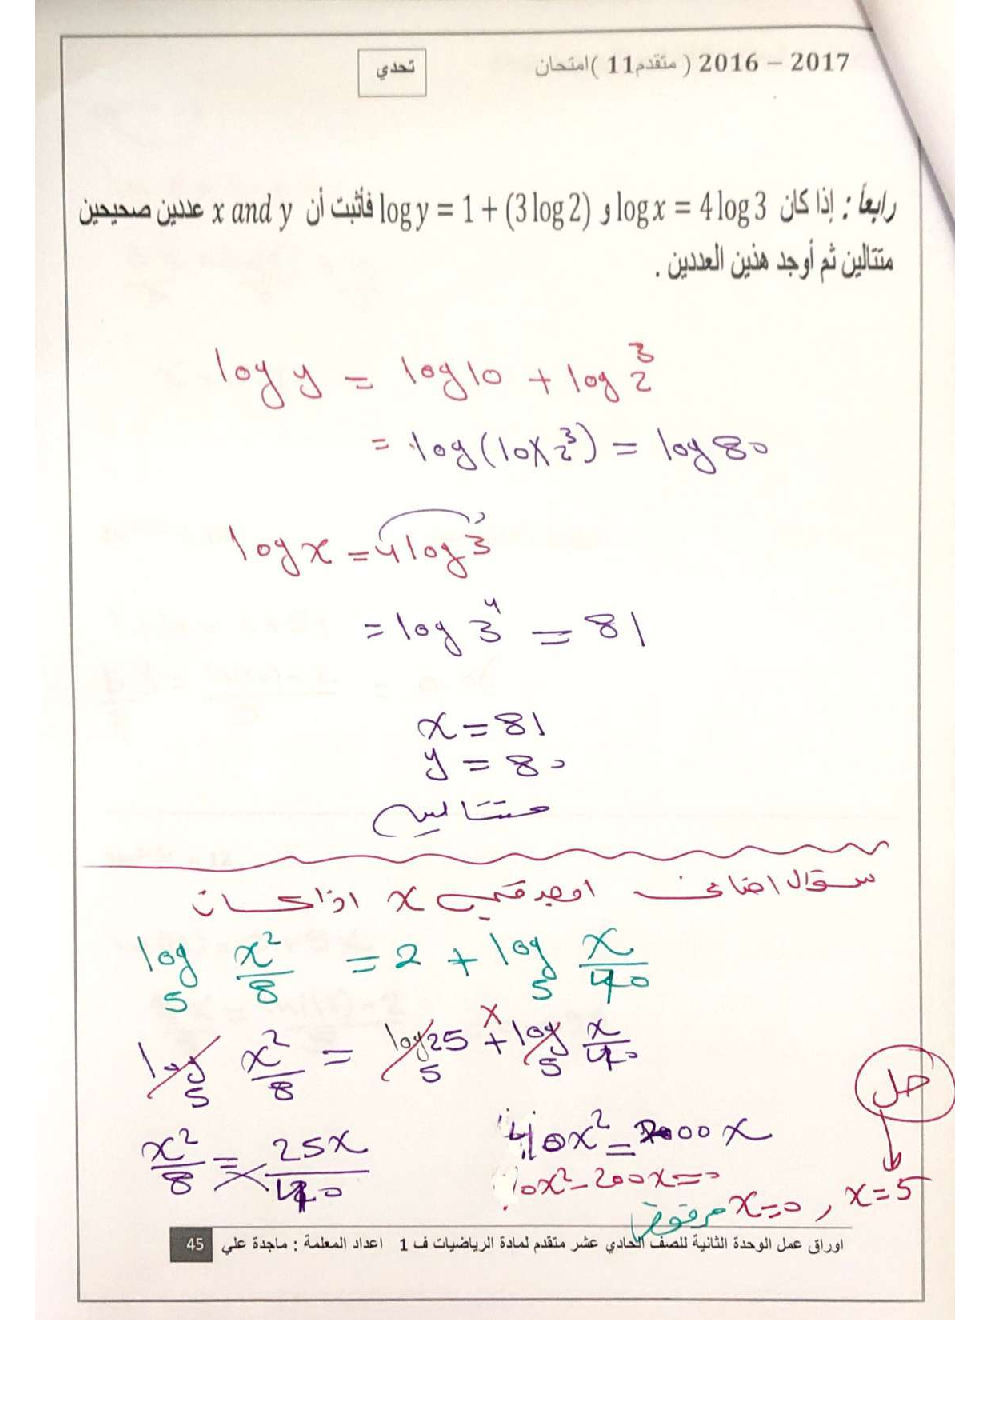 2016 – 2017 ( متقدم11 )امتحان
تحدي
رابعاً : إذا كان log x = 4 log 3 و log y = 1 + (3 log 2) فأثبت أن x and y عددين صحيحين
متتالين ثم أوجد هذين العددين .
log y = log 10 + log 2³
= log(10×2³) = log 80
log x = 4 log 3
= log 3⁴ = 81
x = 81
y = 80
متتاليين
سؤال اضافي اوجد قيمة x اذا كانت
log₅ x²/8 = 2 + log₅ x/40
log₅ x²/8 = log₅ 25 + log₅ x/40
x²/8 = 25x/40
40x² = 200x
x=0 , x=5
مرفوض
حل
اوراق عمل الوحدة الثانية للصف الحادي عشر متقدم لمادة الرياضيات ف 1 اعداد المعلمة : ماجدة علي 45